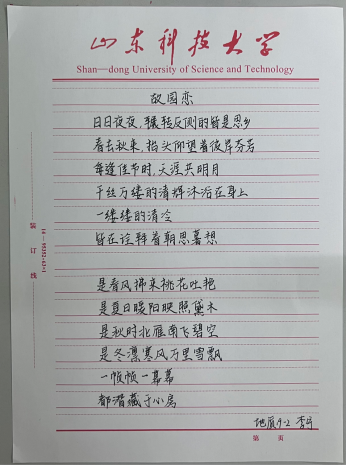 山东科技大学
Shan—dong University of Science and Technology
故园恋
日日夜夜，辗转反侧的皆是思乡
春去秋来，抬头仰望着彼岸芬芳
每逢佳节时，天涯共明月
千丝万缕的清辉沐浴在身上
一缕缕的清冷
皆在诠释着朝思暮想
是春风拂来桃花吐艳
是夏日暖阳映照黛木
是秋时北雁南飞碧空
是冬凛寒风万里雪飘
一帧帧一幕幕
都潜藏于心房
地质9-2 李
第 页
装订线